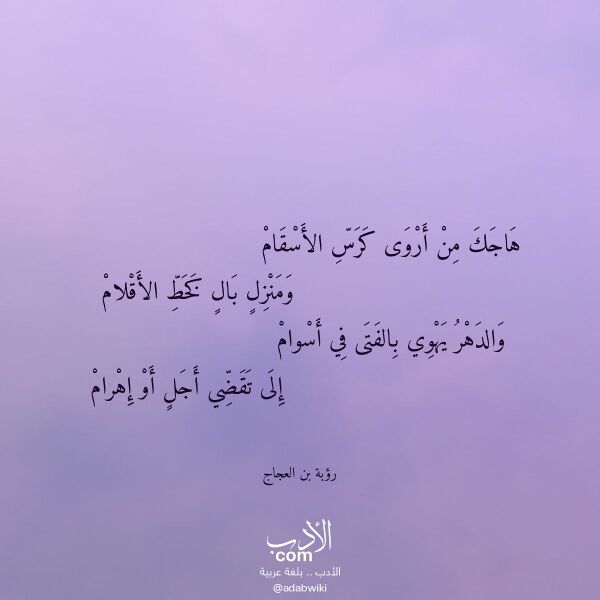 هَاجَكَ مِنْ أَرْوَى كَرَسِّ الأَسْقَامْ
وَمَنْزِلٍ بَالٍ كَخَطِّ الأَقْلامْ
وَالدَهْرُ يَهْوِي بِالفَتَى فِي أَسْوامْ
إِلَى تَقَضِّي أَجَلٍ أَوْ إِهْرامْ
رؤبة بن العجاج
الأدب
.com
الأدب .. بلغة عربية
@adabwiki